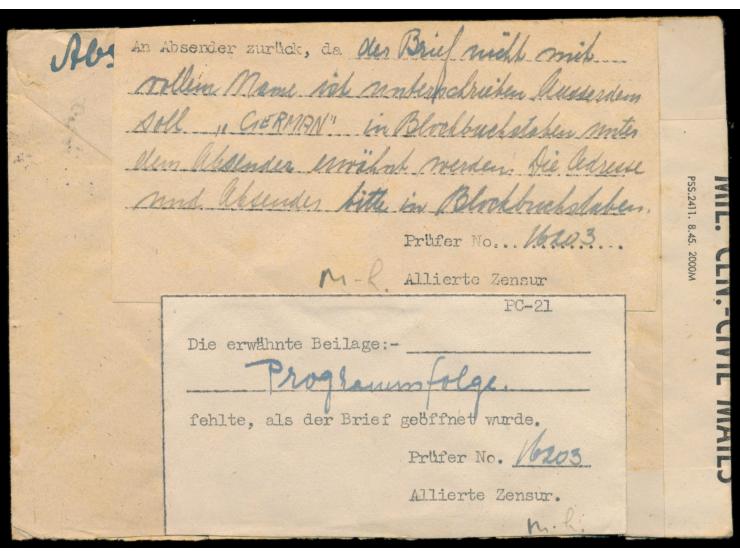 Abs
An Absender zurück, da der Brief nicht mit
vollem Name ist unterschrieben Ausserdem
soll „GERMAN" in Blockbuchstaben unter
dem Absender erwähnt werden. Die Adresse
und Absender bitte in Blockbuchstaben.
Prüfer No... 16203
M-R. Allierte Zensur
PC-21
Die erwähnte Beilage:-
Programmfolge.
fehlte, als der Brief geöffnet wurde.
Prüfer No. 16203
Allierte Zensur.
M.R.
MIL. CEN.-CIVIL MAILS
PSS.2411. 8.45. 2000M